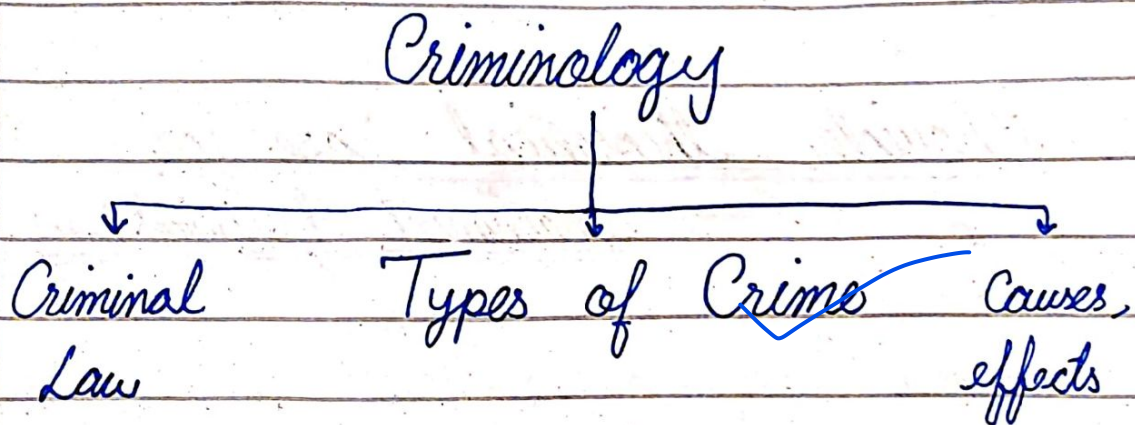 Criminology
Criminal Types of Crime Causes,
Law effects